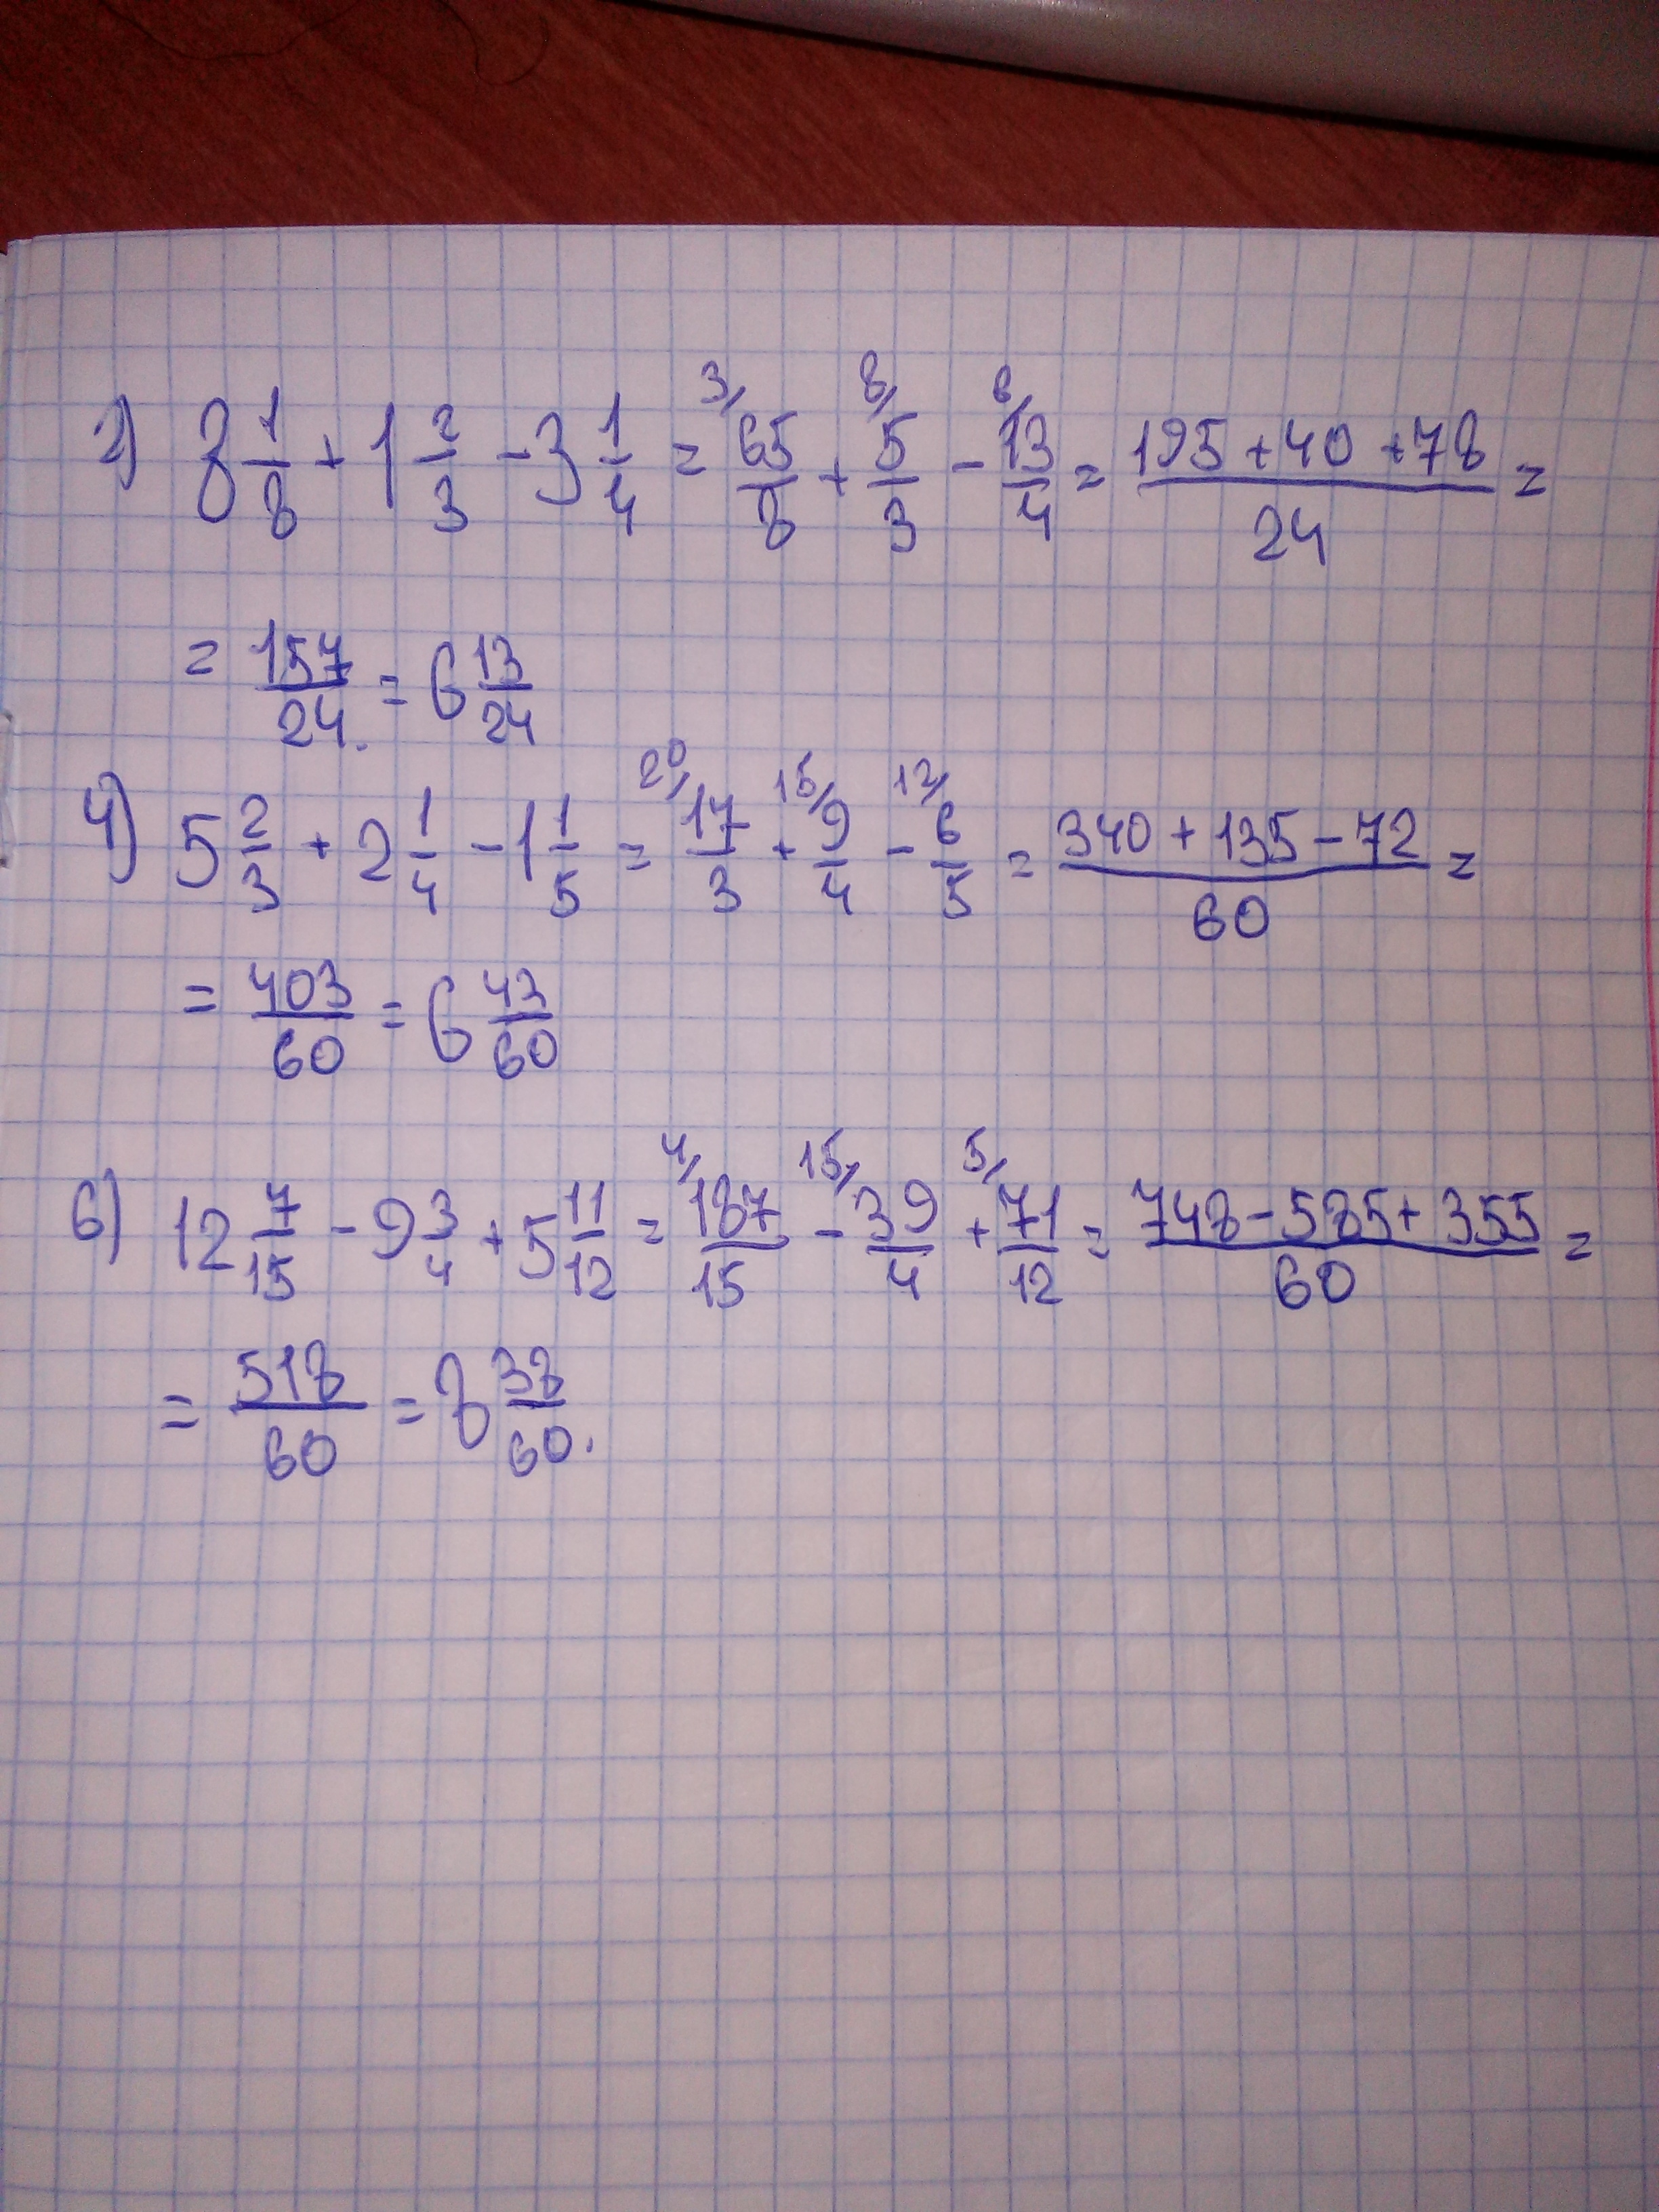 2) 8 1/8 + 1 2/3 - 3 1/4 = 3/ 65/8 + 8/ 5/3 - 6/ 13/4 = (195 + 40 + 78)/24 =
= 157/24. = 6 13/24
4) 5 2/3 + 2 1/4 - 1 1/5 = 20/ 17/3 + 15/ 9/4 - 12/ 6/5 = (340 + 135 - 72)/60 =
= 403/60 = 6 43/60
6) 12 7/15 - 9 3/4 + 5 11/12 = 4/ 187/15 - 15/ 39/4 + 5/ 71/12 = (748 - 585 + 355)/60 =
= 518/60 = 8 38/60.